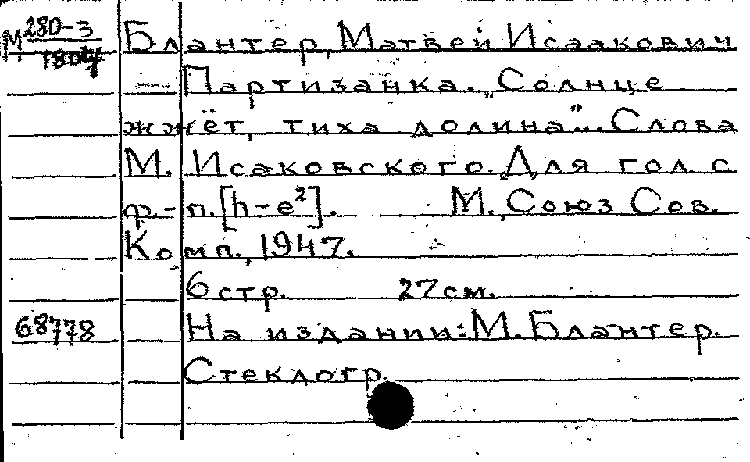 М 280-3
Блантер, Матвей Исаакович
— Партизанка. „Солнце
жжёт, тиха долина"... Слова
М. Исаковского. Для гол. с
ф-п. [h-e²]. М., Союз Сов.
Комп., 1947.
6 стр. 27 см.
68778 На издании: М. Блантер.
Стеклогр.